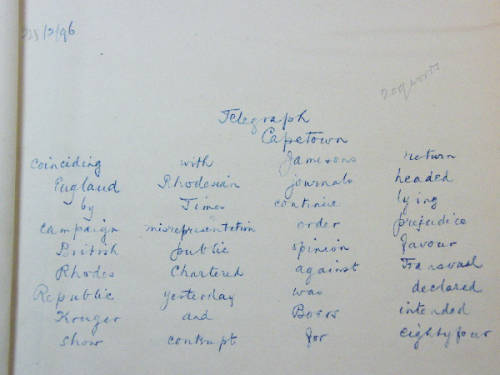 28/2/96
209 words
Telegraph
Capetown
coinciding with Jamesons return
England Rhodesian journals headed
by Times continue lying
campaign misrepresentation order prejudice
British public opinion favour
Rhodes Chartered against Transvaal
Republic yesterday was declared
Kruger and Boers intended
show contempt for eightyfour